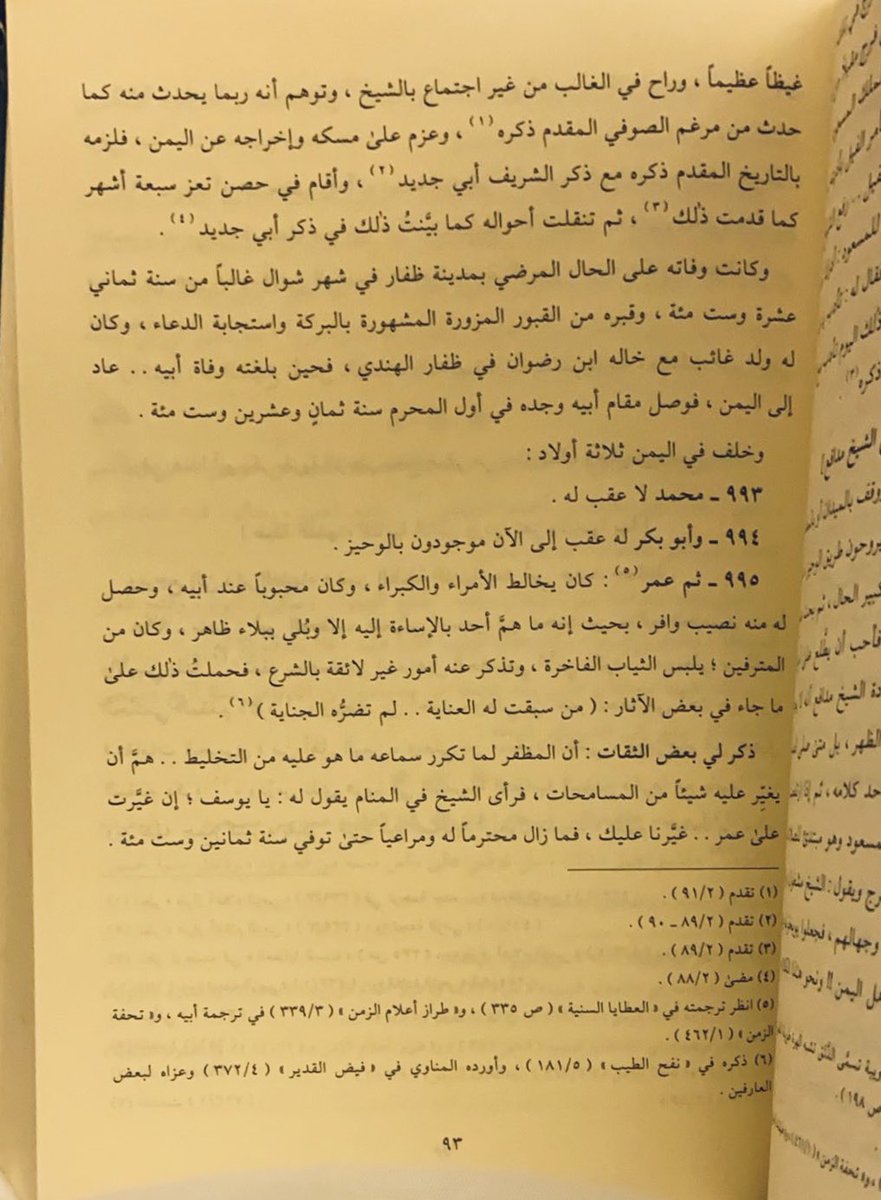 غيظاً عظيماً ، وراح في الغالب من غير اجتماع بالشيخ ، وتوهم أنه ربما يحدث منه كما
حدث من مرغم الصوفي المقدم ذكره(١) ، وعزم علىٰ مسكه وإخراجه عن اليمن ، فلزمه
بالتاريخ المقدم ذكره مع ذكر الشريف أبي جديد(٢) ، وأقام في حصن تعز سبعة أشهر
كما قدمت ذٰلك(٣) ، ثم تنقلت أحواله كما بيَّنتُ ذٰلك في ذكر أبي جديد(٤) .
وكانت وفاته على الحال المرضي بمدينة ظفار في شهر شوال غالباً من سنة ثماني
عشرة وست مئة ، وقبره من القبور المزورة المشهورة بالبركة واستجابة الدعاء ، وكان
له ولد غائب مع خاله ابن رضوان في ظفار الهندي ، فحين بلغته وفاة أبيه .. عاد
إلى اليمن ، فوصل مقام أبيه وجده في أول المحرم سنة ثمانٍ وعشرين وست مئة .
وخلف في اليمن ثلاثة أولاد :
٩٩٣ ـ محمد لا عقب له .
٩٩٤ ـ وأبو بكر له عقب إلى الآن موجودون بالوحيز .
٩٩٥ ـ ثم عمر(٥) : كان يخالط الأمراء والكبراء ، وكان محبوباً عند أبيه ، وحصل
له منه نصيب وافر ، بحيث إنه ما همَّ أحد بالإساءة إليه إلا وبُلي ببلاء ظاهر ، وكان من
المترفين ؛ يلبس الثياب الفاخرة ، وتذكر عنه أمور غير لائقة بالشرع ، فحملتُ ذٰلك علىٰ
ما جاء في بعض الآثار : ( من سبقت له العناية .. لم تضرُّه الجناية )(٦) .
ذكر لي بعض الثقات : أن المظفر لما تكرر سماعه ما هو عليه من التخليط .. همَّ أن
يغيِّر عليه شيئاً من المسامحات ، فرأى الشيخ في المنام يقول له : يا يوسف ؛ إن غيَّرت
علىٰ عمر .. غيَّرنا عليك ، فما زال محترماً له ومراعياً حتىٰ توفي سنة ثمانين وست مئة .
(١) تقدم ( ٩١/٢ ) .
(٢) تقدم ( ٨٩/٢ ـ ٩٠ ) .
(٣) تقدم ( ٨٩/٢ ) .
(٤) مضىٰ ( ٨٨/٢ ) .
(٥) انظر ترجمته في « العطايا السنية » ( ص ٣٣٥ ) ، و« طراز أعلام الزمن » ( ٣٣٩/٣ ) في ترجمة أبيه ، و« تحفة
الزمن » ( ٤٦٢/١ ) .
(٦) ذكره في « نفح الطيب » ( ١٨١/٥ ) ، وأورده المناوي في « فيض القدير » ( ٣٧٢/٤ ) وعزاه لبعض
العارفين .
٩٣